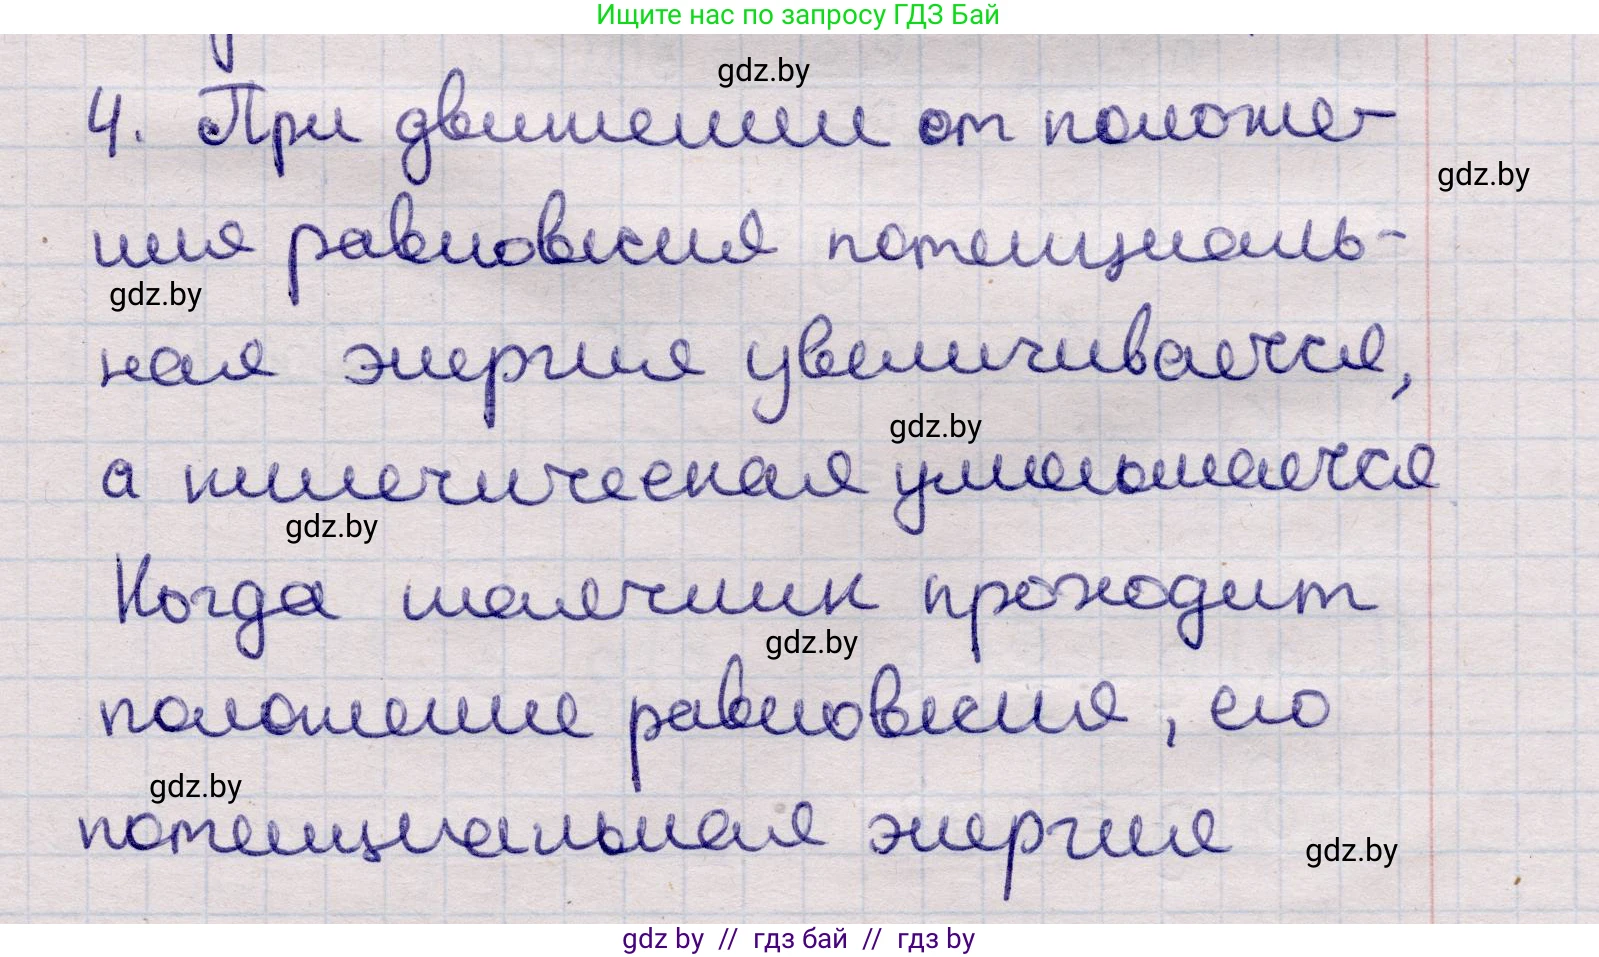 Ищите нас по запросу ГДЗ Бай
gdz.by
4. При движении от положе-
gdz.by
ния равновесия потенциаль-
gdz.by
ная энергия увеличивается,
gdz.by
а кинетическая уменьшается
gdz.by
Когда маятник проходит
gdz.by
положение равновесия, его
gdz.by
потенциальная энергия
gdz.by
gdz by // гдз бай // гдз by